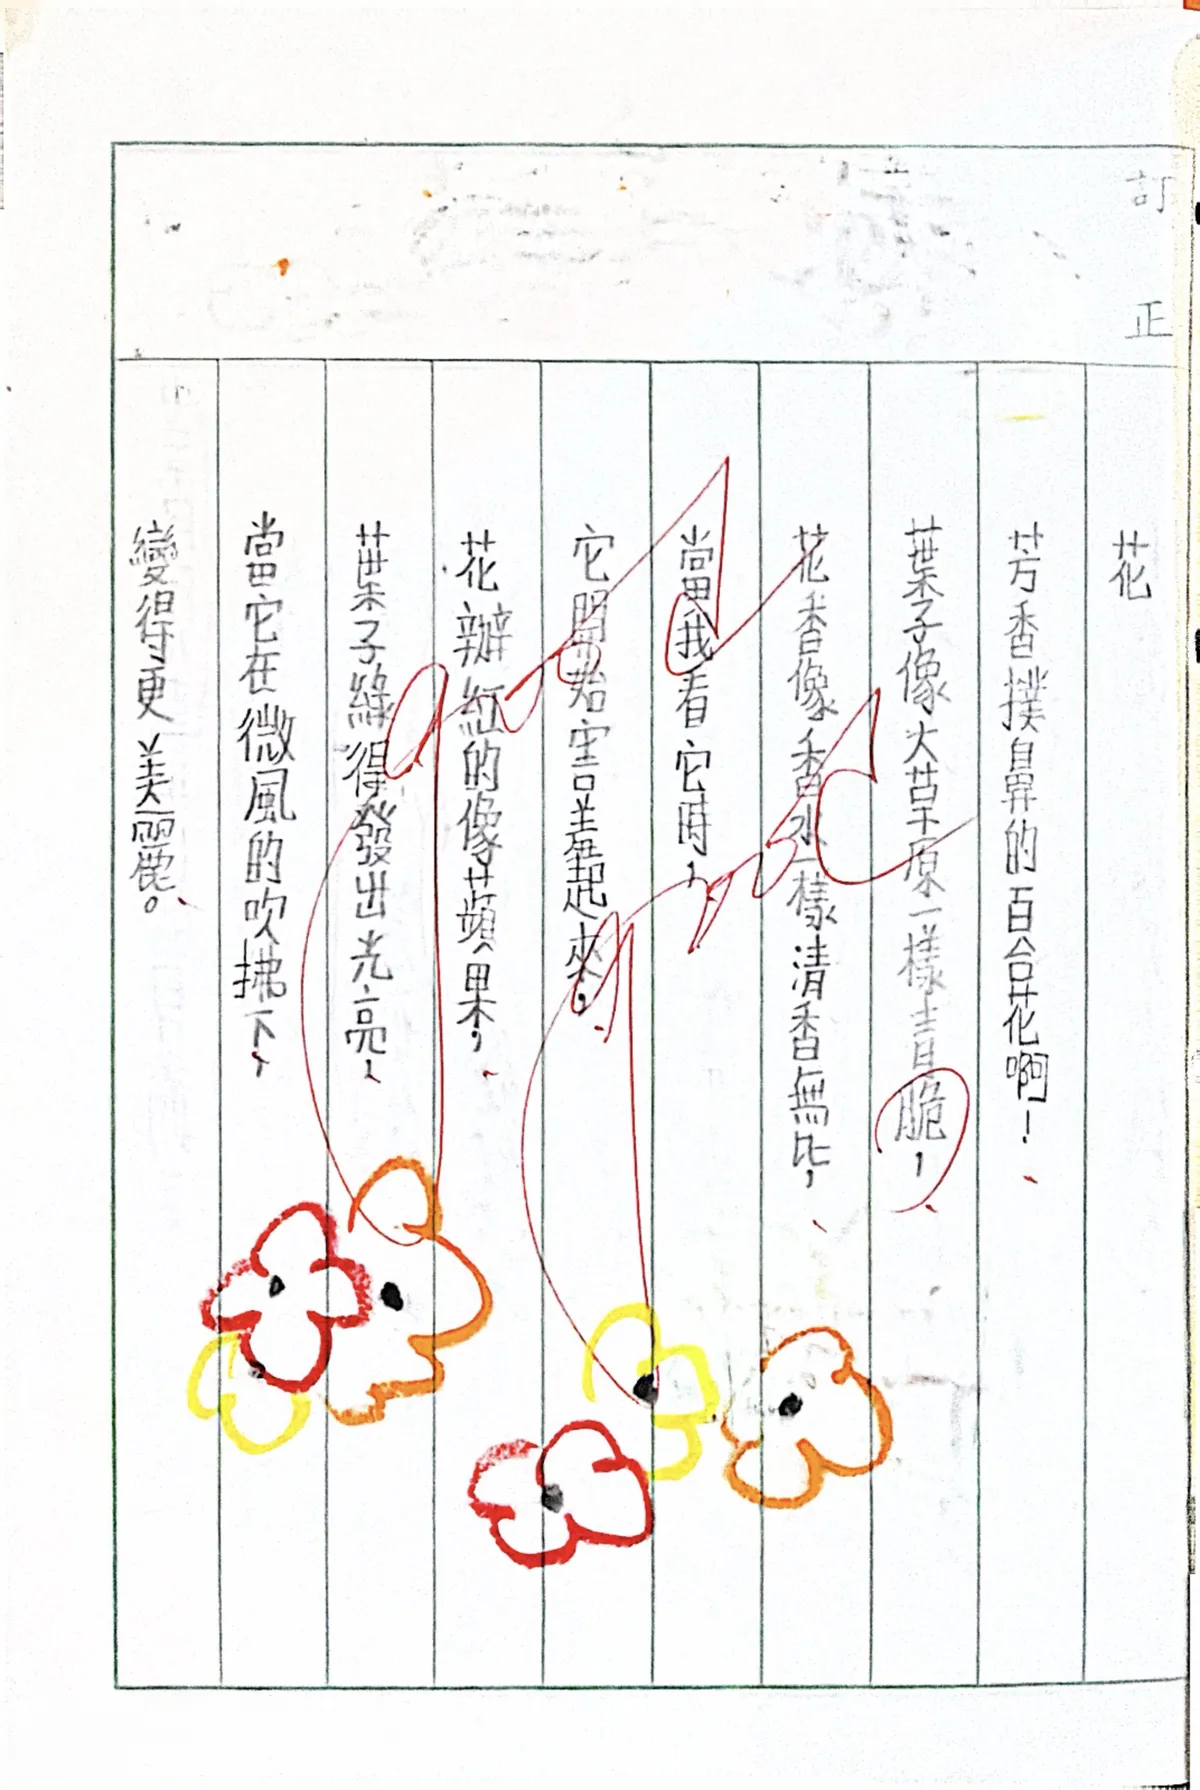 訂正
花
芳香撲鼻的百合花啊！
葉子像大草原一樣青脆，
花香像香水一樣清香無比，
當我看它時，
它開始害羞起來，
花瓣紅的像蘋果，
葉子綠得發出光亮，
當它在微風的吹拂下，
變得更美麗。